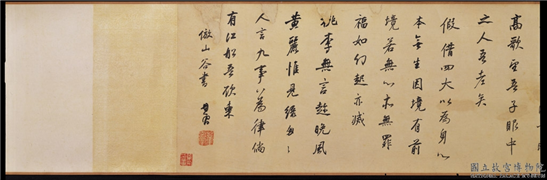 高歌望吾子眼中
之人吾老矣
假借四大以為身心
本無生因境有前
境若無心亦無罪
福如幻起亦滅
桃李無言晚風
黃鸝惟見綠
人言九事八為律倘
有江船吾欲東
倣山谷書
國立故宮博物院